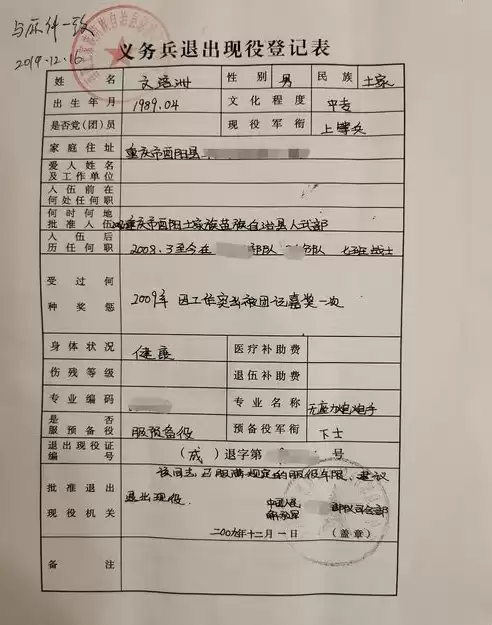 与原件一致
2019.12.16
义务兵退出现役登记表
姓名 文 洲 性别 男 民族 土家
出生年月 1989.04 文化程度 中专
是否党(团)员 现役军衔 上等兵
家庭住址 重庆市酉阳县
爱人姓名及工作单位
入伍前在何处任何职
何时何地批准入伍 重庆市酉阳土家族苗族自治县人武部
入伍后历任何职 2008.3至今在 部队 分队 七班战士
受过何种奖惩 2009年 因工作突出被团记嘉奖一次
身体状况 健康 医疗补助费
伤残等级 退伍补助费
专业编码 专业名称 无座力炮炮手
是否服预备役 服预备役 预备役军衔 下士
退出现役证编号 (成)退字第 号
批准退出现役机关 该同志已服满规定的服役年限,建议
退出现役.
中国人民解放军 部队司令部
二〇〇九年十二月一日 (盖章)
备注